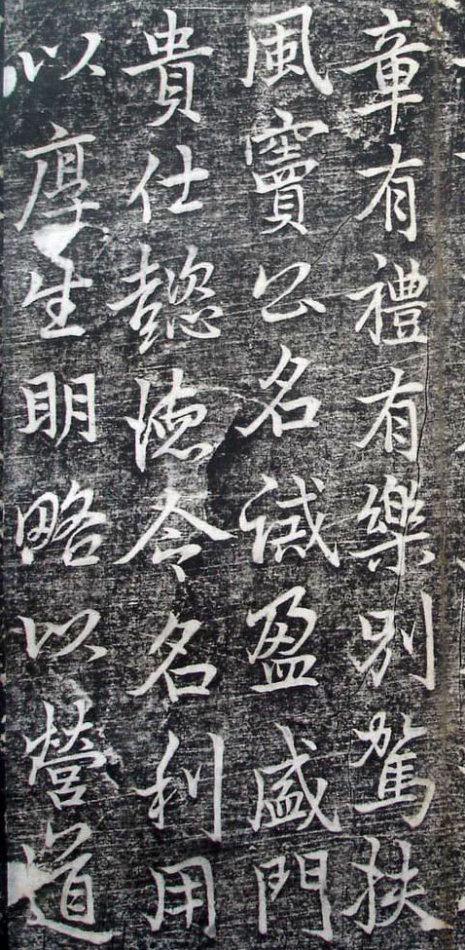 章有禮有樂別駕扶
風竇公名誡盈盛門
貴仕懿德令名利用
以厚生明略以營道